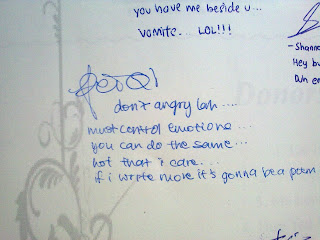 you have me beside u...
vomits.. LOL!!!
-Shanno
Hey bu
don't angry lah ....
must control emotions ...
you can do the same ...
not that i care....
if i write more it's gonna be a poem
Donor